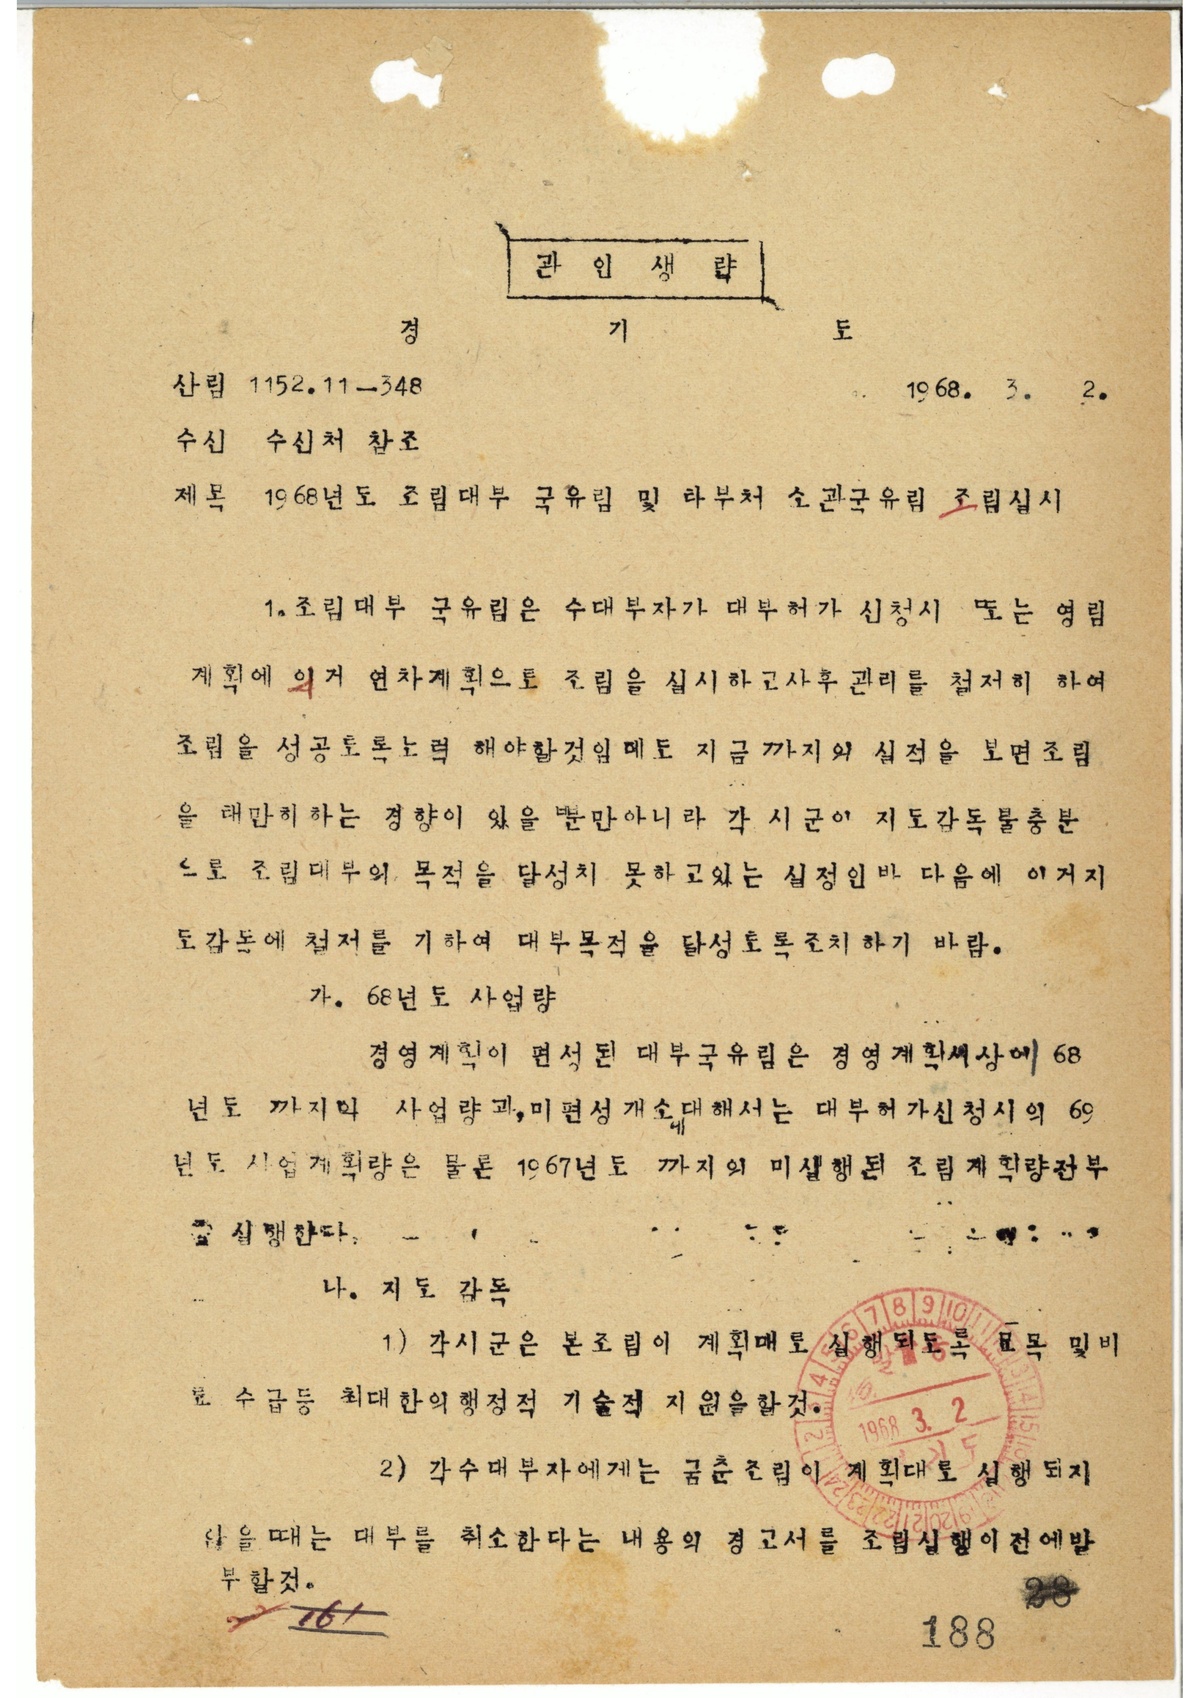 관 인 생 략
경 기 도
산림 1152.11-348 1968. 3. 2.
수신 수신처 참조
제목 1968년도 조림대부 국유림 및 타부처 소관국유림 조림실시
1.조림대부 국유림은 수대부자가 대부허가 신청시 또는 영림
계획에 의거 연차계획으로 조림을 실시하고사후관리를 철저히 하여
조림을 성공토록노력 해야할것임에도 지금까지의 실적을 보면조림
을 태만히하는 경향이 있을 뿐만아니라 각 시군이 지도감독불충분
으로 조림대부의 목적을 달성치 못하고있는 실정인바 다음에 이거지
도감독에 철저를 기하여 대부목적을 달성토록조치하기 바람.
가. 68년도 사업량
경영계획이 편성된 대부국유림은 경영계획서상에 68
년도 까지의 사업량과,미편성개소에대해서는 대부허가신청시의 69
년도 사업계획량은 물론 1967년도 까지의 미실행된 조림계획량전부
를 실행한다.
나. 지도 감독
1) 각시군은 본조림이 계획대로 실행되도록 묘목 및비
료 수급등 최대한의행정적 기술적 지원을할것.
2) 각수대부자에게는 금춘조림이 계획대로 실행되지
않을때는 대부를 취소한다는 내용의 경고서를 조림실행이전에발
부할것.
1968 3. 2
161
28
188